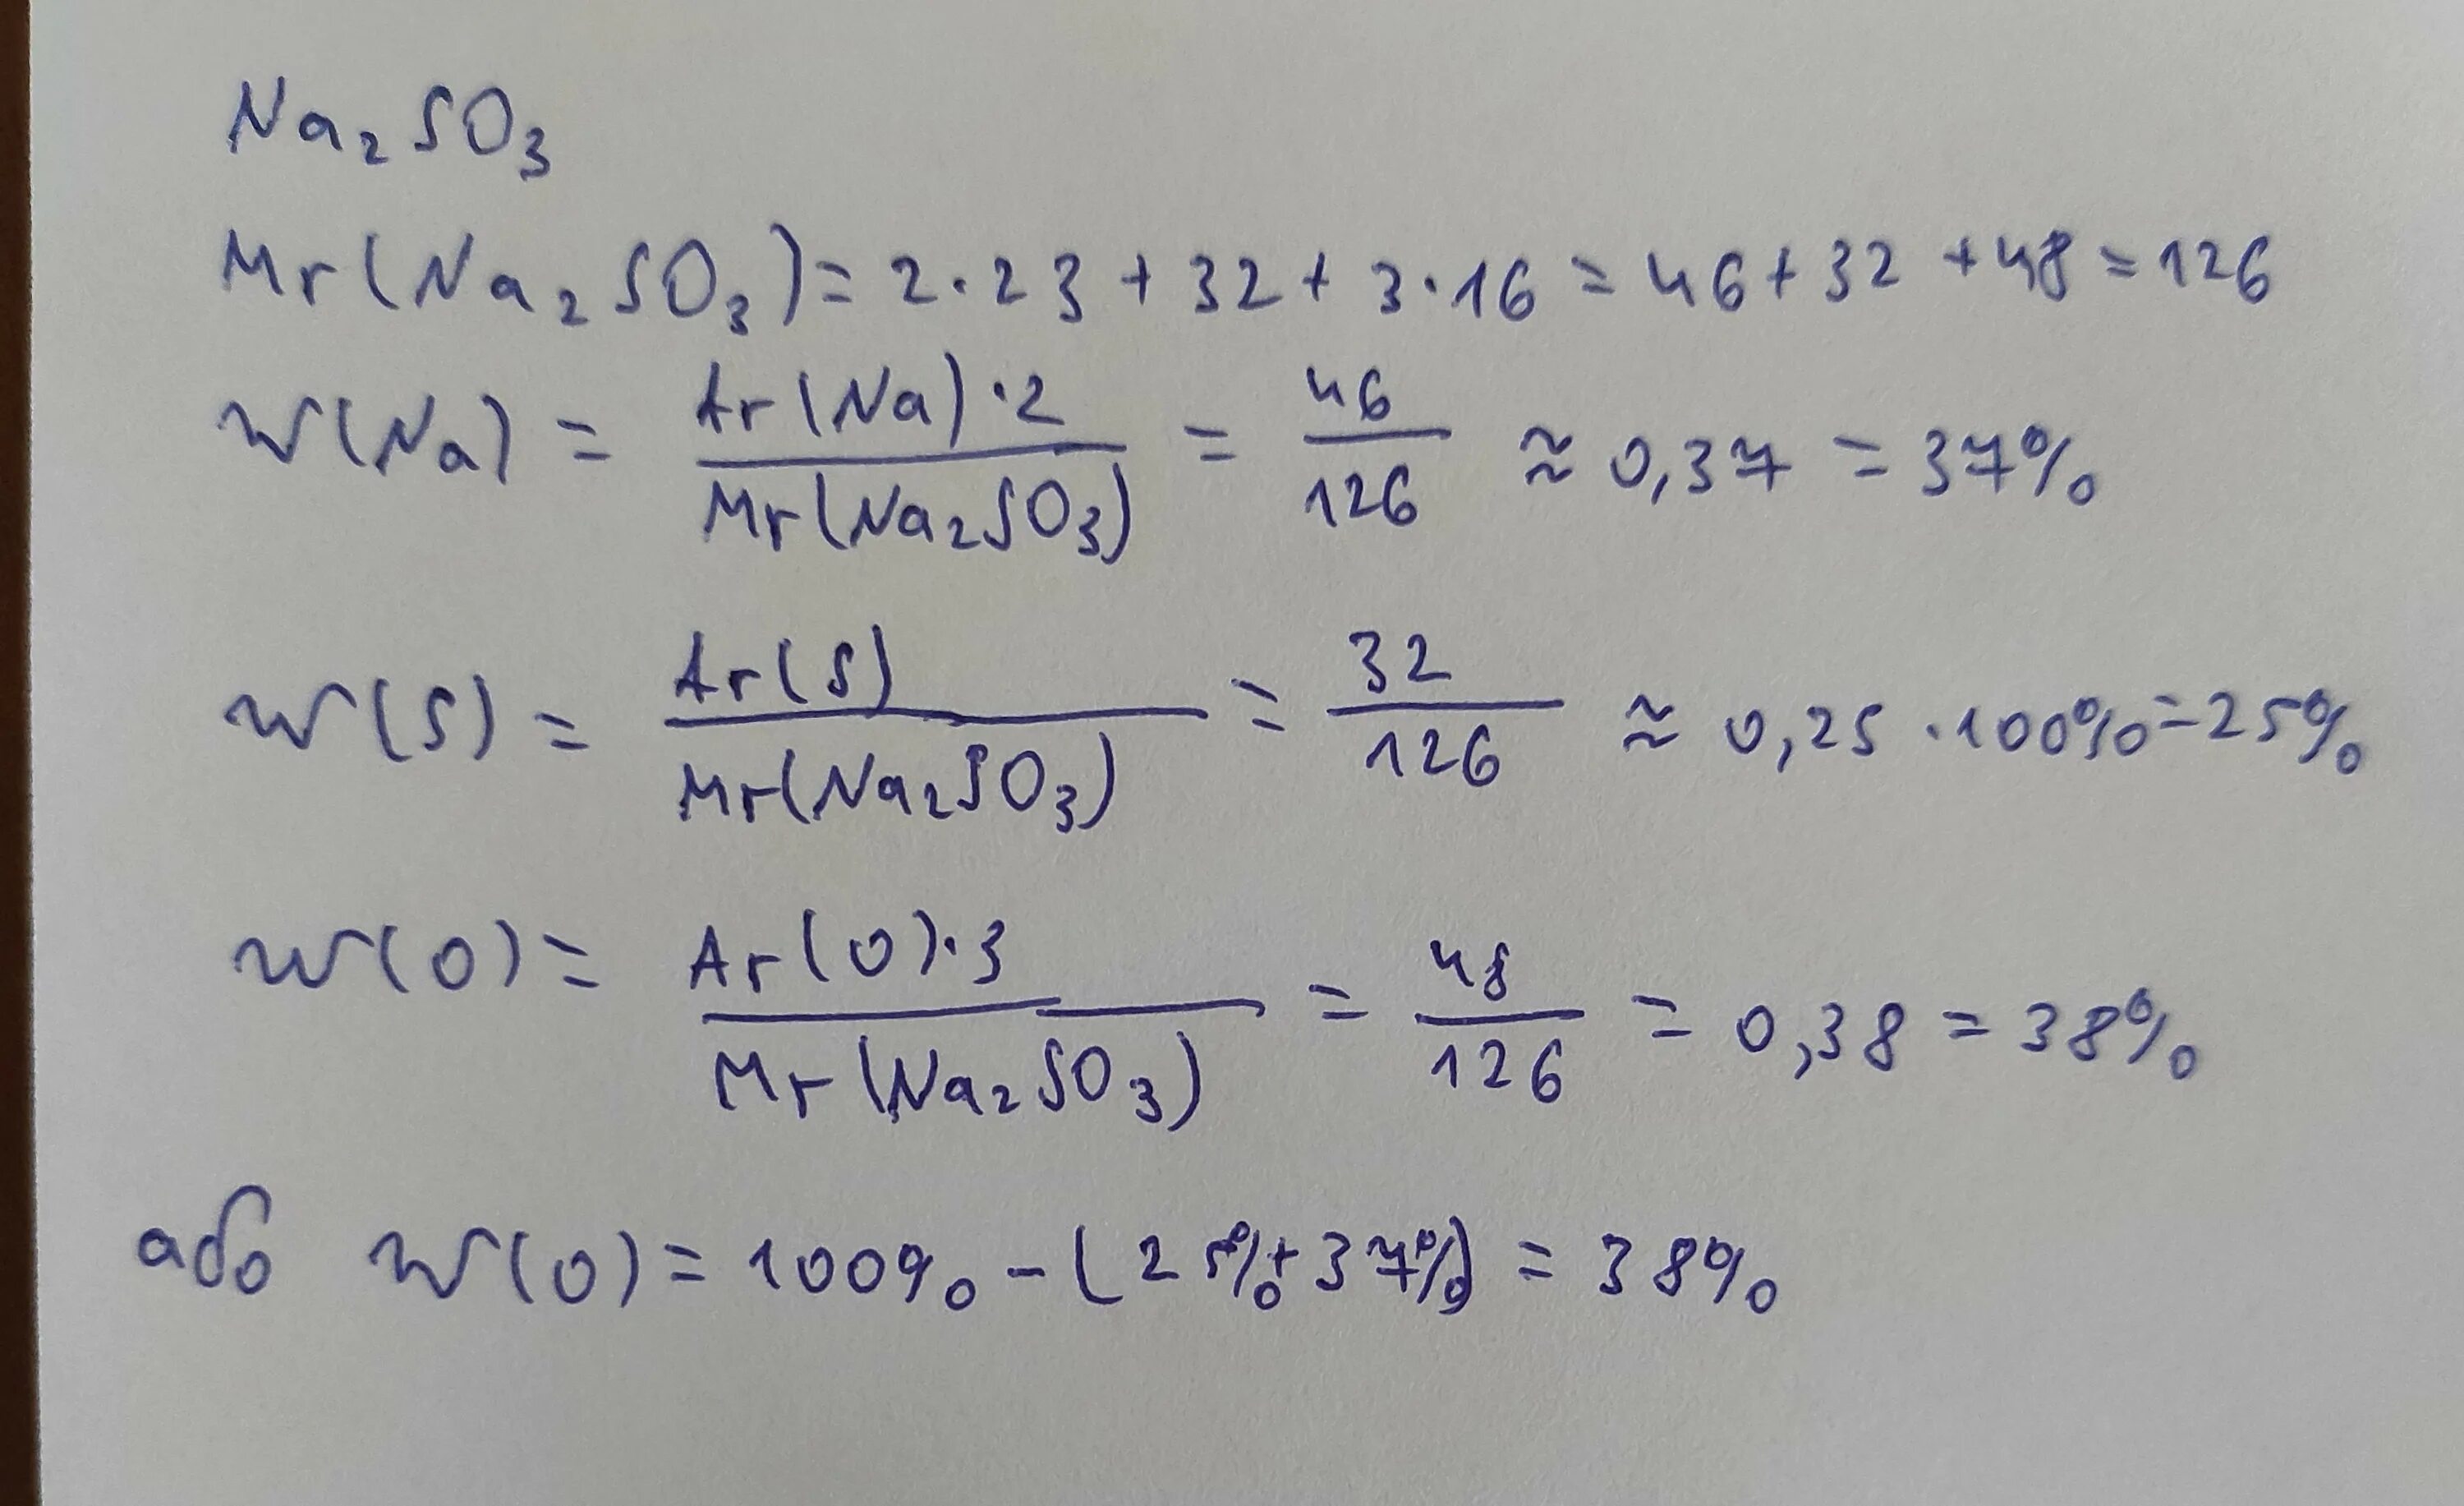 Na₂SO₃
Mr(Na₂SO₃) = 2·23 + 32 + 3·16 = 46 + 32 + 48 = 126
w(Na) = Ar(Na)·2 / Mr(Na₂SO₃) = 46 / 126 ≈ 0,37 = 37%
w(S) = Ar(S) / Mr(Na₂SO₃) = 32 / 126 ≈ 0,25 · 100% = 25%
w(O) = Ar(O)·3 / Mr(Na₂SO₃) = 48 / 126 = 0,38 = 38%
або w(O) = 100% - (25% + 37%) = 38%